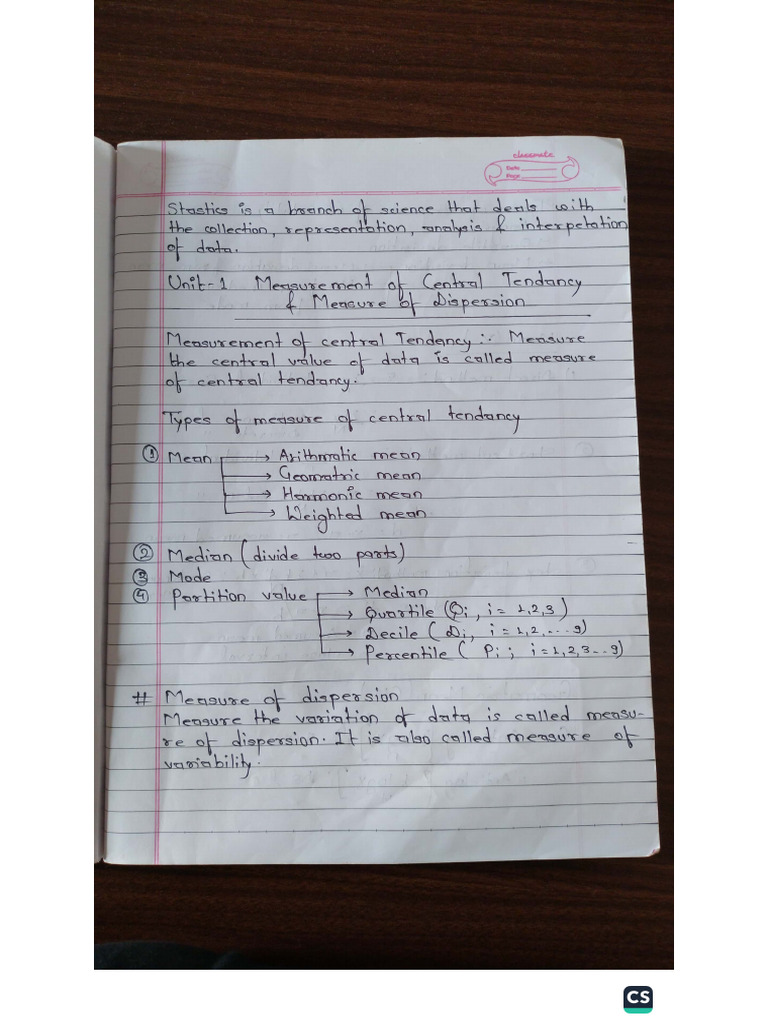 classmate
Date
Page
Stastics is a branch of science that deals with
the collection, representation, analysis & interpetation
of data.
Unit-1 Measurement of Central Tendancy
& Measure of Dispersion
Measurement of central Tendency :- Measure
the central value of data is called measure
of central tendancy.
Types of measure of central tendancy
① Mean → Arithmatic mean
→ Geomatric mean
→ Harmonic mean
→ Weighted mean
② Median (divide two parts)
③ Mode
④ Partition value → Median
→ Quartile (Qi, i = 1,2,3)
→ Decile ( Di, i = 1,2,...9)
→ Percentile ( Pi ; i = 1,2,3...9)
# Measure of dispersion
Measure the variation of data is called measu-
re of dispersion. It is also called measure of
variability.
CS